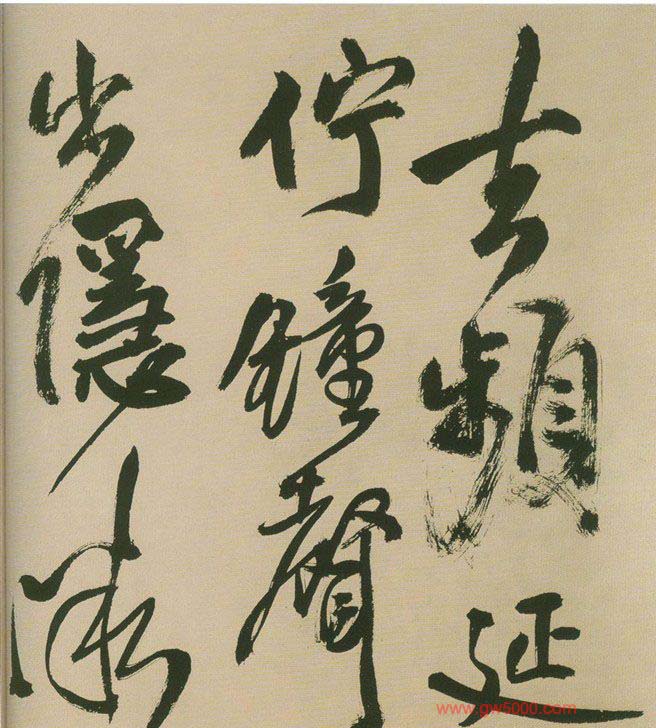 去頻延
佇鐘聲
出隱
www.gw5000.com